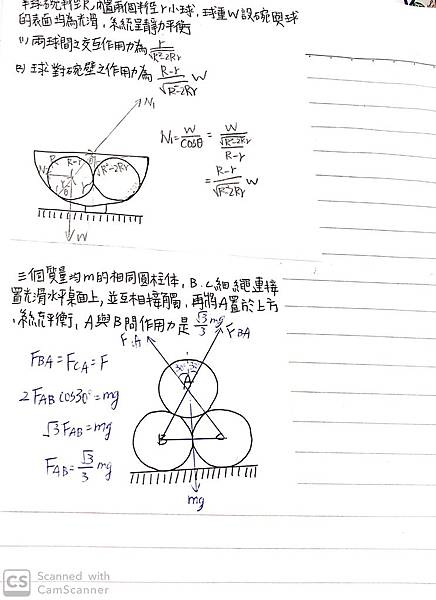 半球碗半徑R,內置兩個半徑r小球,球重W設碗與球
的表面均為光滑,系統呈靜力平衡
(1) 兩球間之交互作用力為 r/√R²-2Rr
(2) 球對碗壁之作用力為 R-r/√R²-2Rr W
N₁
N₁ = W/cosθ = W/(√R²-2Rr/R-r)
= R-r/√R²-2Rr W
R-r
√R²-2Rr
r
θ
W
三個質量均m的相同圓柱体,B.C細繩連接
置光滑水平桌面上,並互相接觸,再將A置於上方
系統平衡,A與B間作用力是 √3/3 mg
FBA
FBA = FCA = F
30° 30°
A
2FAB cos30° = mg
√3 FAB = mg
B
FAB = √3/3 mg
mg
CS Scanned with
CamScanner